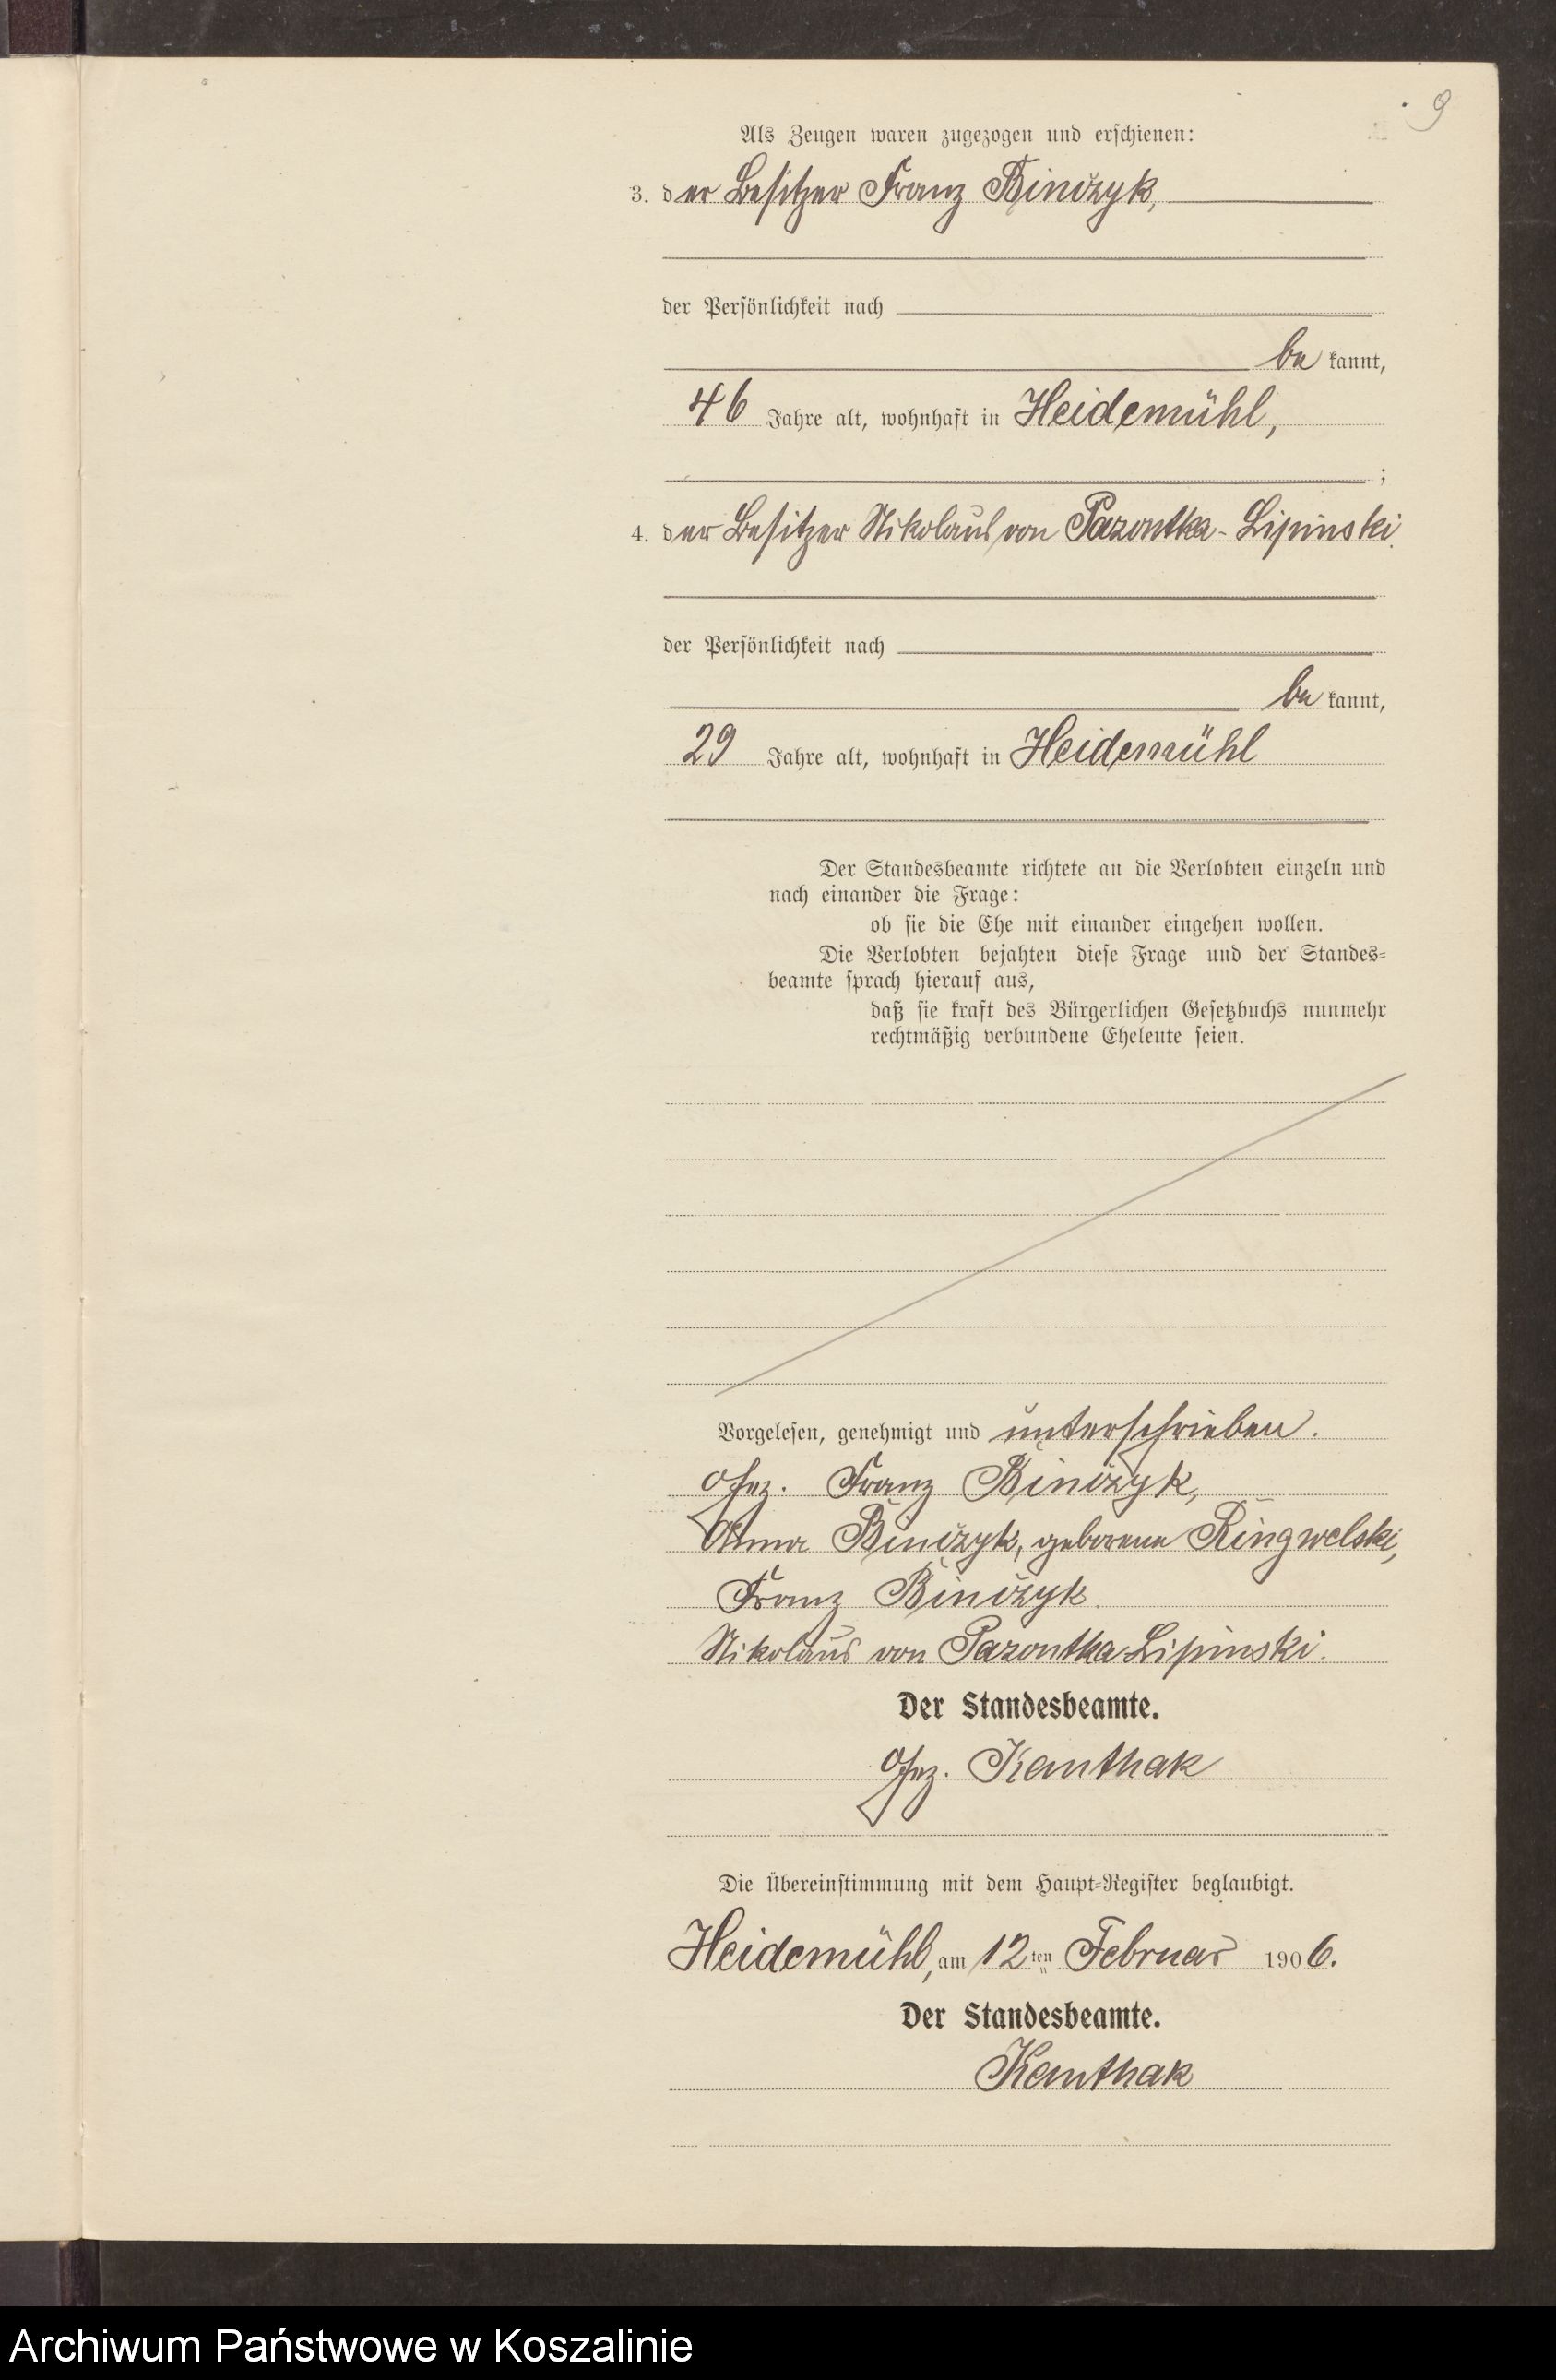 9
Als Zeugen waren zugezogen und erschienen:
3. der Besitzer Franz Binczyk,
der Persönlichkeit nach
be kannt,
46 Jahre alt, wohnhaft in Heidemühl,
;
4. der Besitzer Nikolaus von Pazontka-Lipinski.
der Persönlichkeit nach
be kannt,
29 Jahre alt, wohnhaft in Heidemühl
Der Standesbeamte richtete an die Verlobten einzeln und
nach einander die Frage:
ob sie die Ehe mit einander eingehen wollen.
Die Verlobten bejahten diese Frage und der Standes=
beamte sprach hierauf aus,
daß sie kraft des Bürgerlichen Gesetzbuchs nunmehr
rechtmäßig verbundene Eheleute seien.
Vorgelesen, genehmigt und unterschrieben.
gez. Franz Binczyk,
Anna Binczyk, geborene Ringwelski,
Franz Binczyk.
Nikolaus von Pazontka-Lipinski.
Der Standesbeamte.
gez. Kanthak
Die Übereinstimmung mit dem Haupt=Register beglaubigt.
Heidemühl, am 12 ten Februar 1906.
Der Standesbeamte.
Kanthak
Archiwum Państwowe w Koszalinie